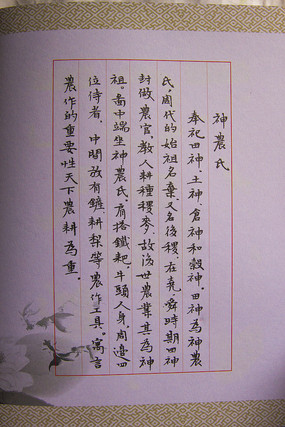 神農氏
奉祀田神、土神、倉神和榖神。田神為神農
氏，周代的始祖名棄，又名後稷，在堯舜時期四神
封做農官，教人耕種稷麥，故後世農業其為神
祖。畵中端坐神農氏，肩搭鐵耙，牛頭人身，周邊四
位侍者，中間放有鏟、耕犁等農作工具。寓言
農作的重要性天下農耕為重。